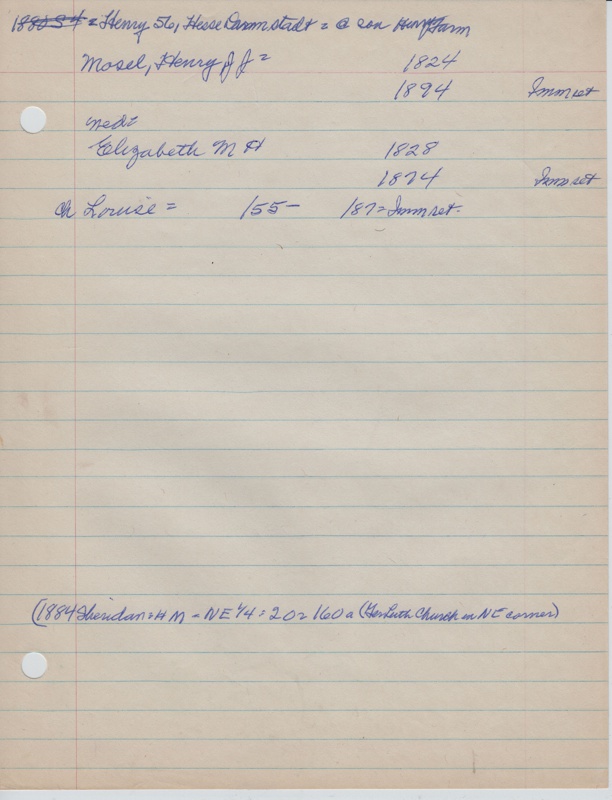 1880 S4 = Henry 56, Hesse Darmstadt = @ son Henry Farm
Mosel, Henry J J = 1824
1894 Immset
med=
Elizabeth M H 1828
1874 Immset
Ch Louise = 155- 187= Immset.
(1884 Sheridan = H M - NE 1/4 = 20 = 160 a (Ger Luth Church in NE corner)